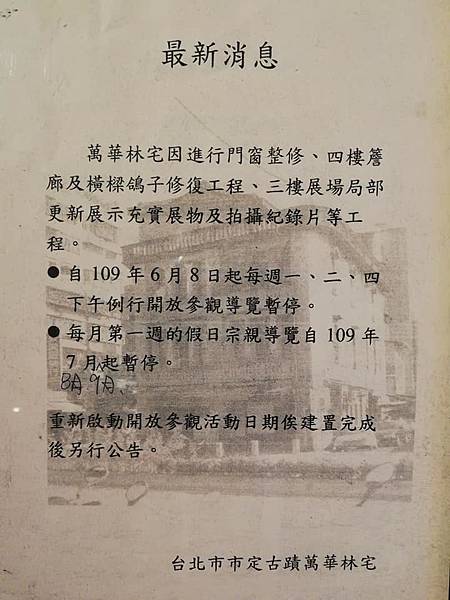 最新消息
萬華林宅因進行門窗整修、四樓簷
廊及橫樑鴿子修復工程、三樓展場局部
更新展示充實展物及拍攝紀錄片等工
程。
● 自 109 年 6 月 8 日起每週一、二、四
下午例行開放參觀導覽暫停。
● 每月第一週的假日宗親導覽自 109 年
7 月起暫停。
8月、9月、
重新啟動開放參觀活動日期俟建置完成
後另行公告。
台北市市定古蹟萬華林宅